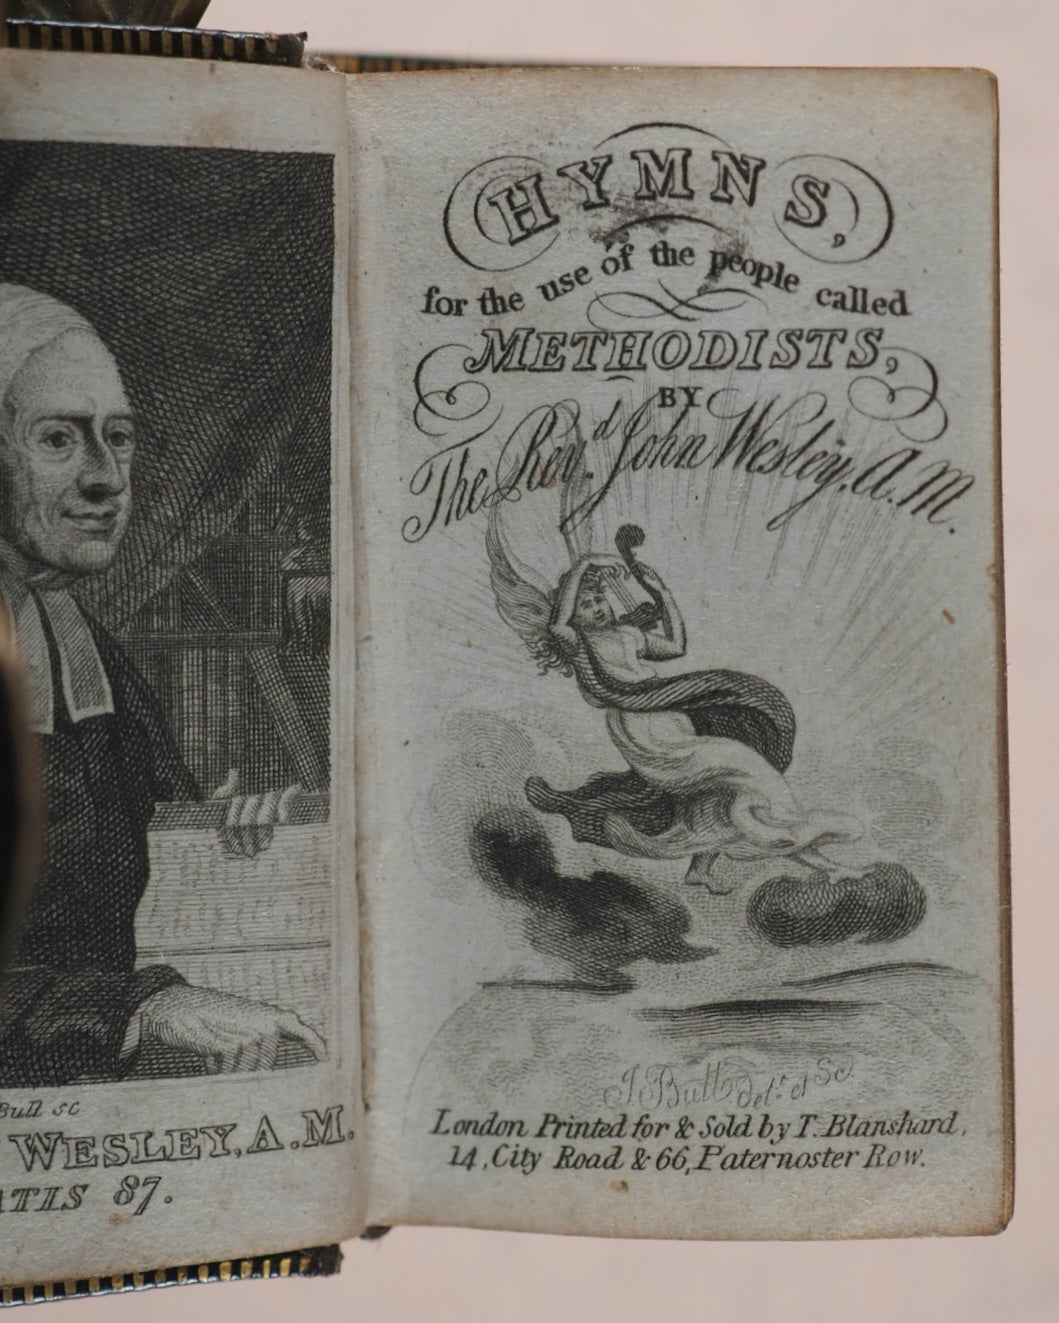 Bull sc
WESLEY, A.M.
ATIS 87.
HYMNS,
for the use of the people called
METHODISTS,
BY
The Revd. John Wesley, A.M.
J. Bull delt. et Sc
London Printed for & Sold by T. Blanshard,
14, City Road & 66, Paternoster Row.